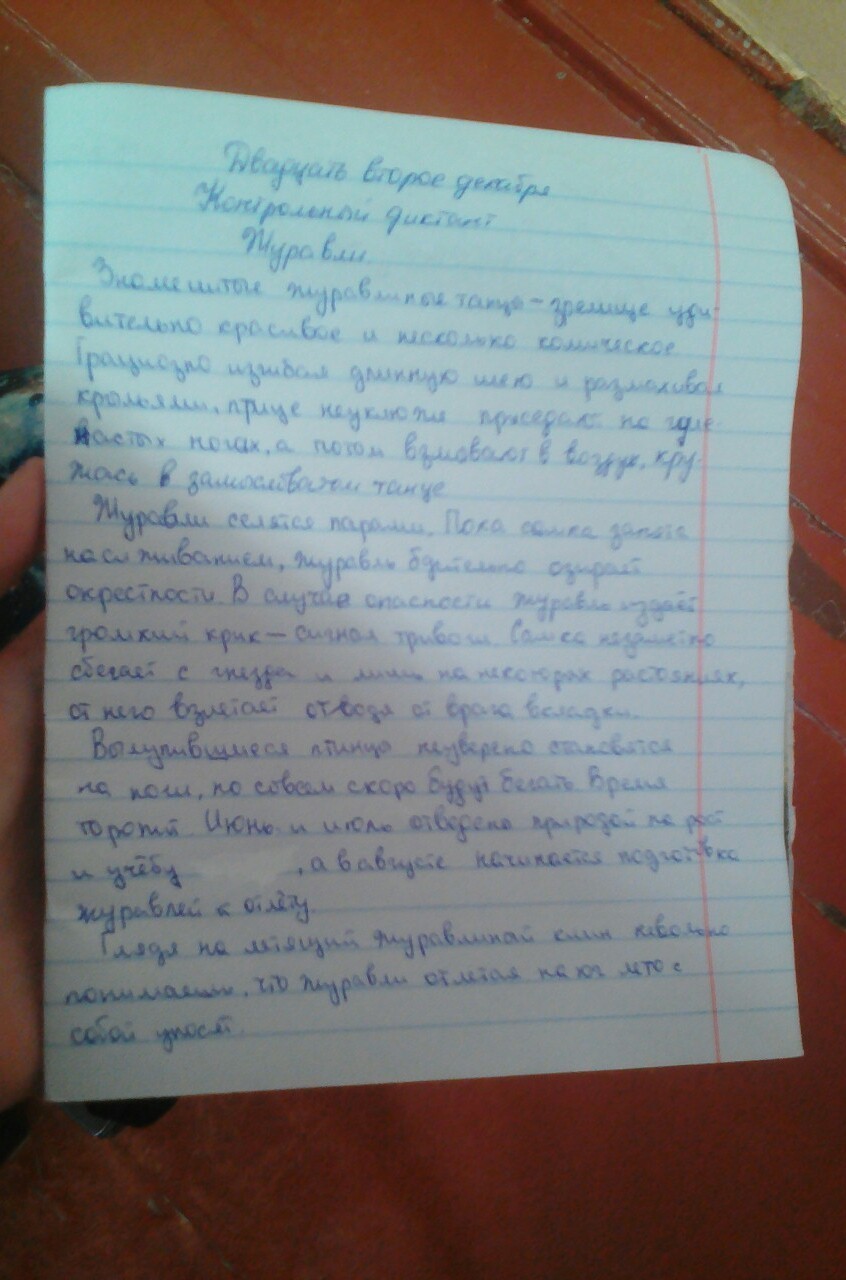 Двадцать второе декабря
Контрольный диктант
Журавли
Знаменитые журавлиные танцы – зрелище уди-
вительно красивое и несколько комическое
Грациозно изгибая длинную шею и размахивая
крыльями, птице неуклюже приседают на голе-
настых ногах, а потом взмывают в воздух, кру-
жась в замысловатом танце
Журавли селятся парами. Пока самка занята
насиживанием, журавль бдительно озирает
окрестности. В случае опасности журавль издаёт
громкий крик – сигнал тривоги. Самка незаметно
сбегает с гнезда и лишь на некоторых растояниях,
от него взлетает отводя от врага вкладки.
Вылупившиеся птинцы неуверено становятся
на ноги, но совсем скоро будут бегать Время
торопит. Июнь и июль отведено природой на рост
и учёбу , а в августе начинается подготовка
журавлей к отлёту.
Глядя на летящий журавлиный клин невольно
понимаешь, что журавли отлетая на юг лето с
собой уносят.